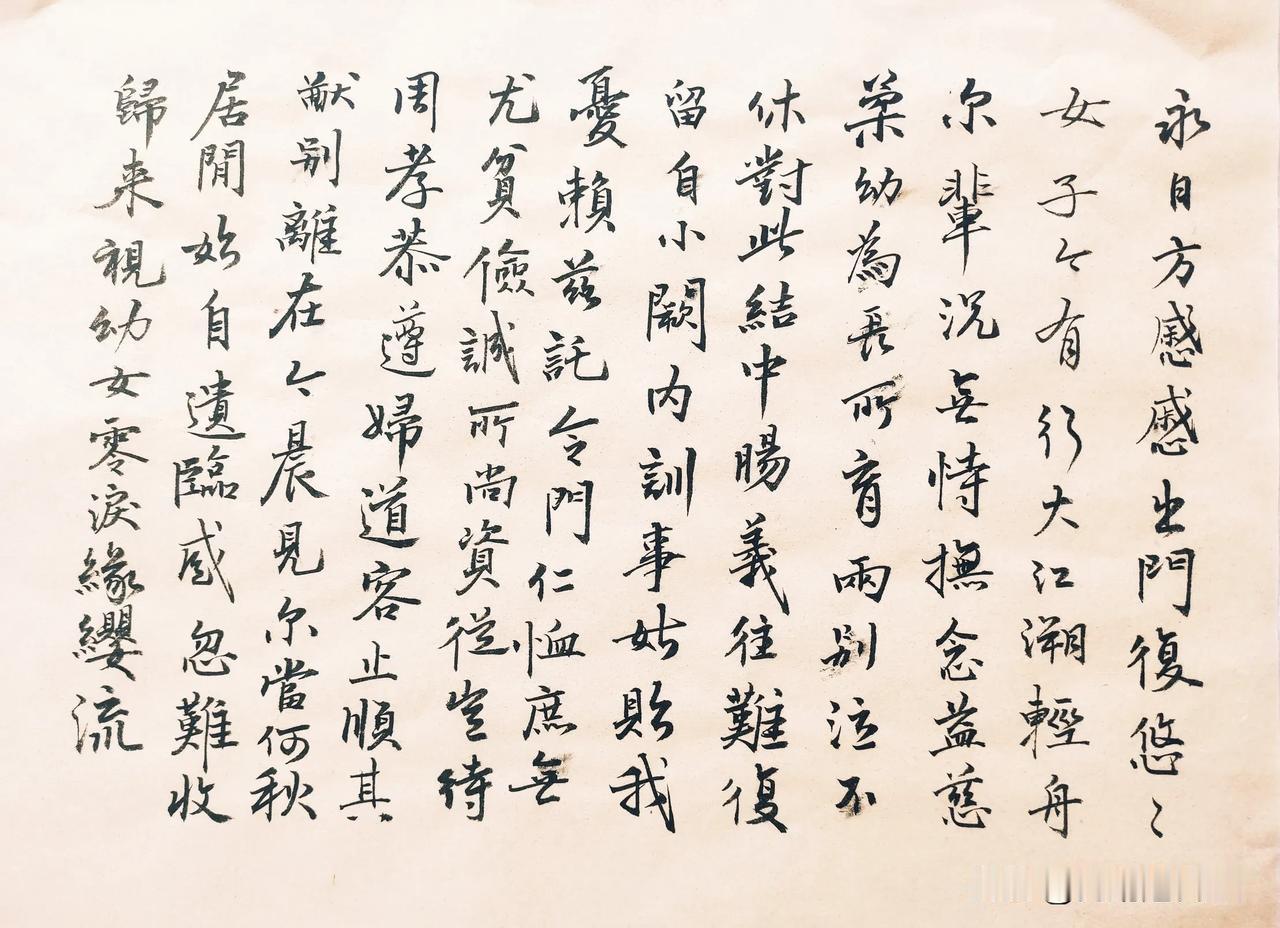 永日方慼慼出門復悠〻
女子今有行大江溯輕舟
尔輩況無恃撫念益慈
柔幼為長所育兩别泣不
休對此結中腸義往難復
留自小闕内訓事姑貽我
憂賴兹託令門仁恤庶無
尤貧儉誠所尚資從豈待
周孝恭遵婦道容止順其
猷别離在今晨見尔當何秋
居閒始自遣臨感忽難收
歸来視幼女零淚緣纓流